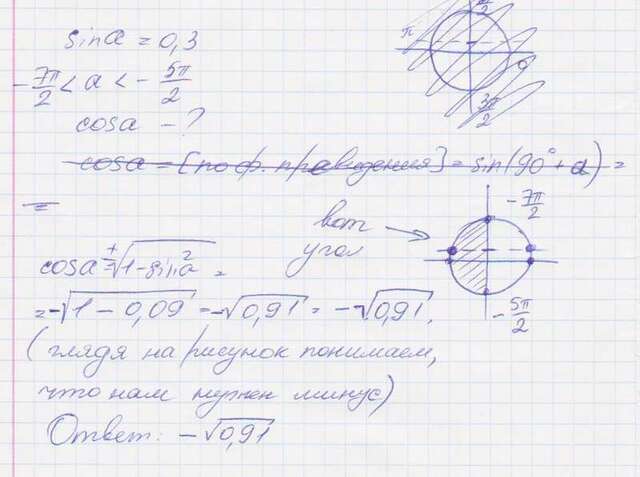 sina = 0,3
π
π/2
0
3π/2
-7π/2 < a < -5π/2
cosa - ?
cosa = [по ф. приведения] = sin(90° + a) =
=
вот
угол
-7π/2
-5π/2
cosa = ±√1-sin²a =
= -√1 - 0,09 = -√0,91 = -√0,91.
(глядя на рисунок понимаем,
что нам нужен минус)
Ответ: -√0,91